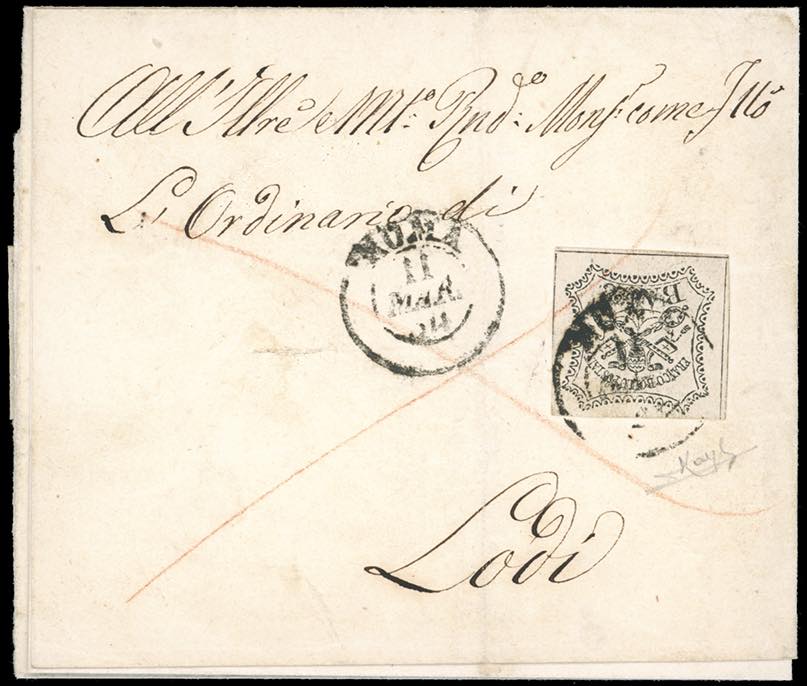 All'Illre e Mto. Rndo. Monsr. come Fllo
L'Ordinario di
ROMA
11
MAR.
FRANCO BOLLO POSTALE
BAJ
Lodi